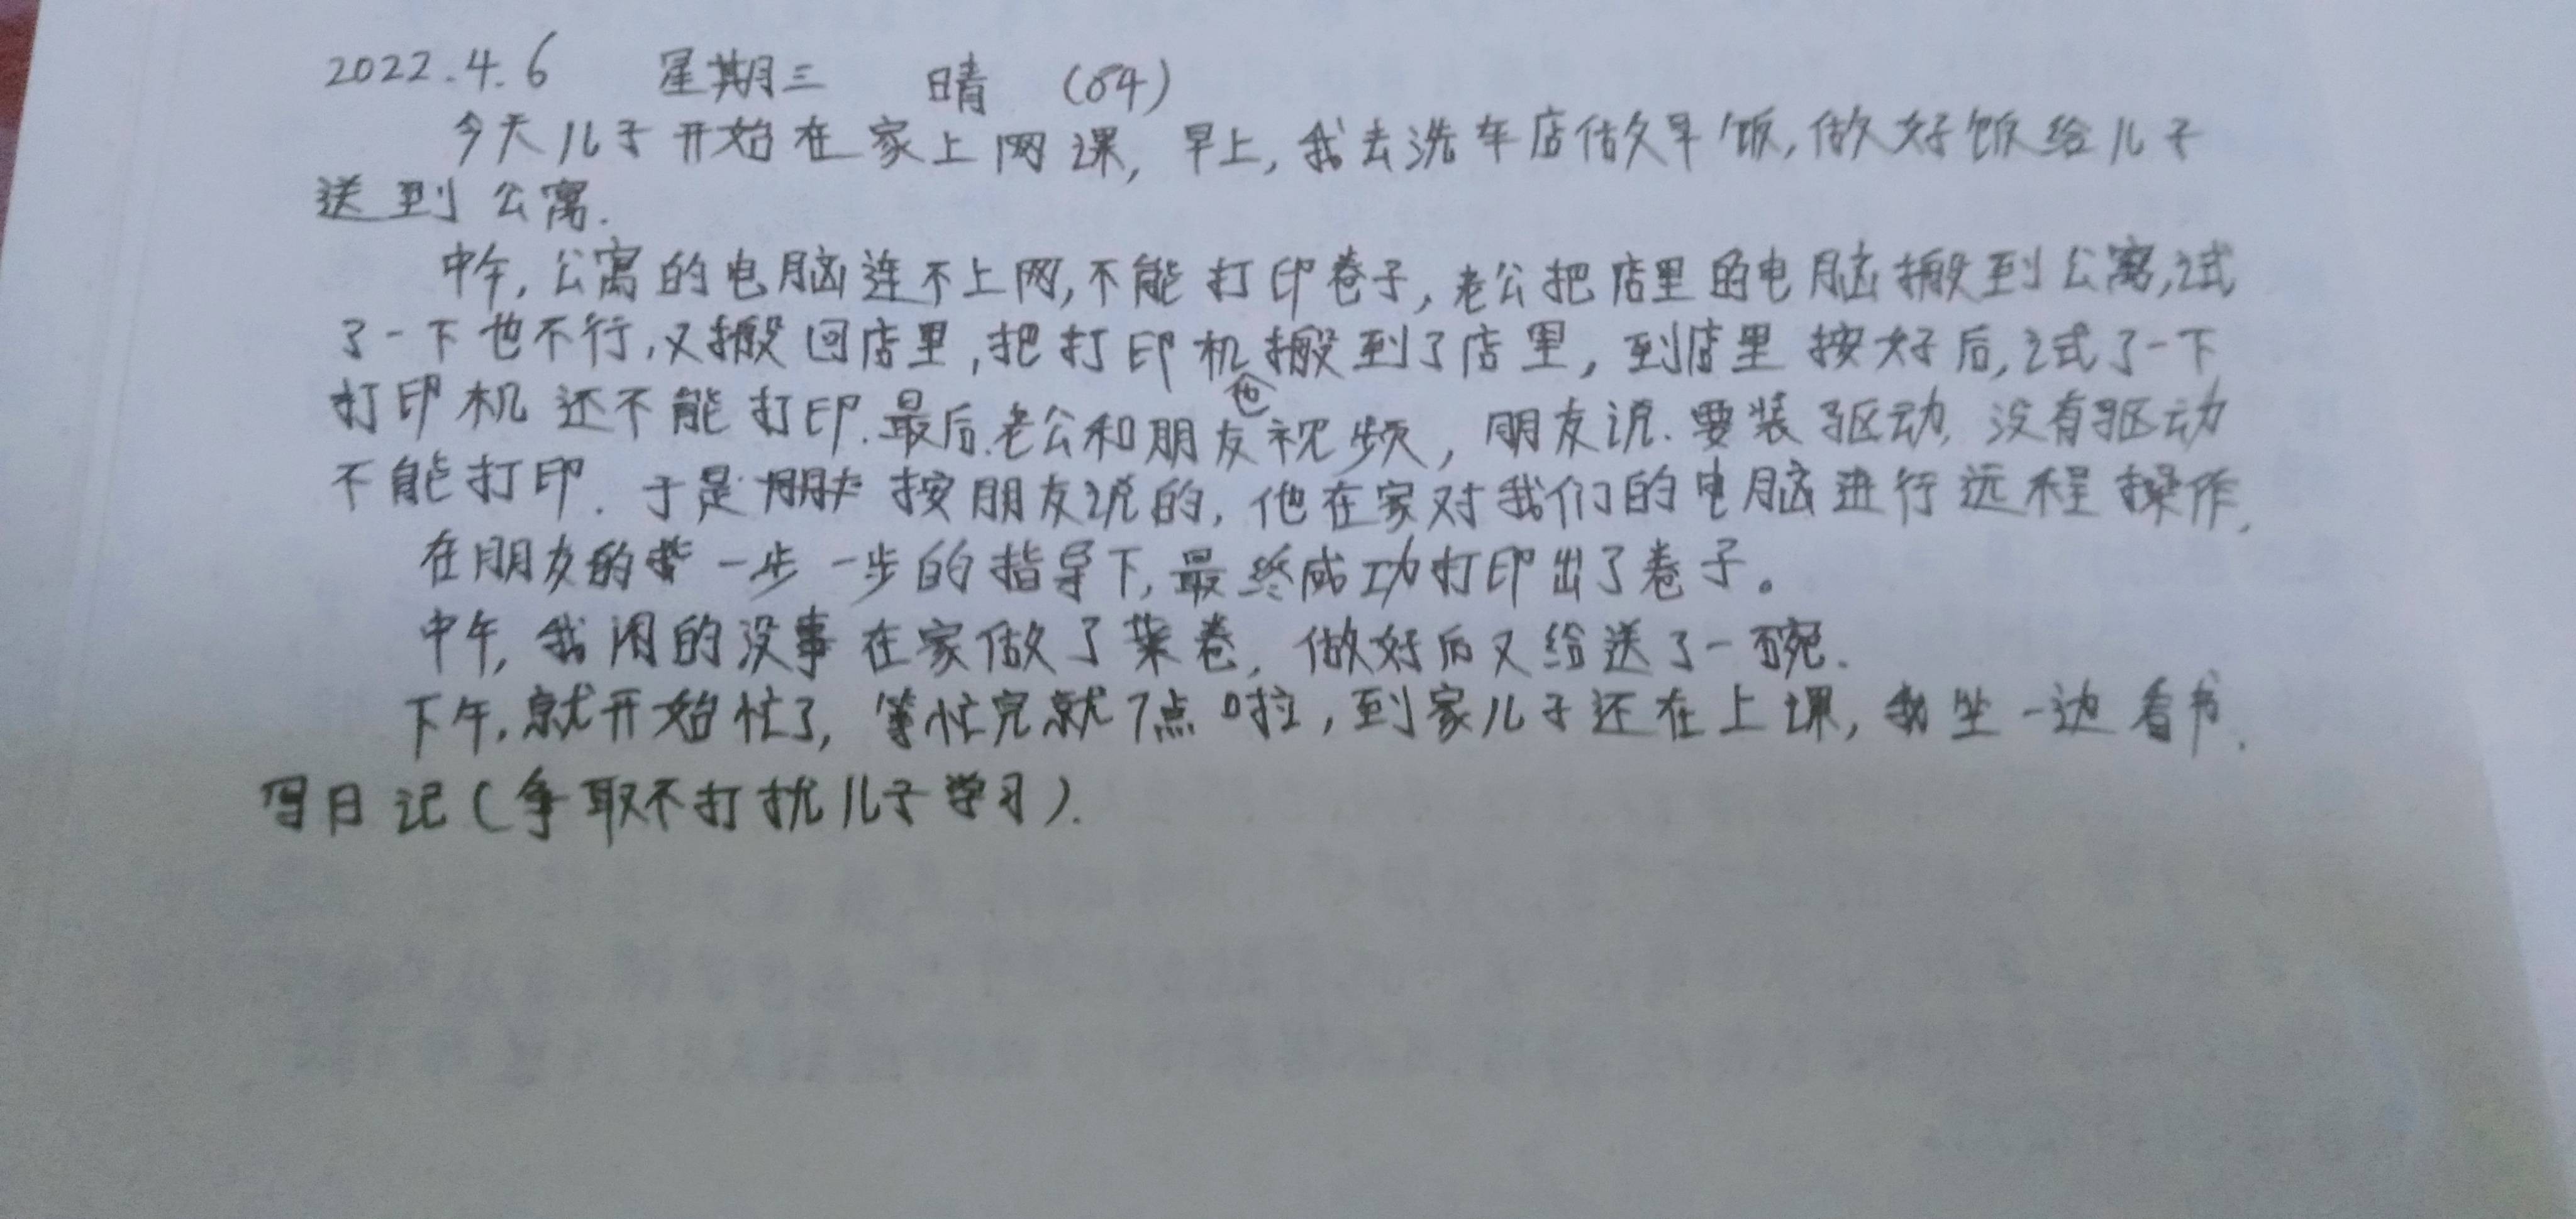 2022.4.6 星期三 晴 (84)
今天儿子开始在家上网课,早上,我去洗车店做早饭,做好饭给儿子
送到公寓.
中午,公寓的电脑连不上网,不能打印卷子,老公把店里的电脑搬到公寓,试
了一下也不行,又搬回店里,把打印机也搬到了店里,到店里按好后,试了一下
打印机还不能打印.最后.老公和朋友视频,朋友说.要装驱动,没有驱动
不能打印.于是按朋友说的,他在家对我们的电脑进行远程操作,
在朋友的一步一步的指导下,最终成功打印出了卷子。
中午,我闲的没事在家做了菜卷,做好后又给送了一碗.
下午,就开始忙了,等忙完就7点啦,到家儿子还在上课,我坐一边看书,
写日记(争取不打扰儿子学习).